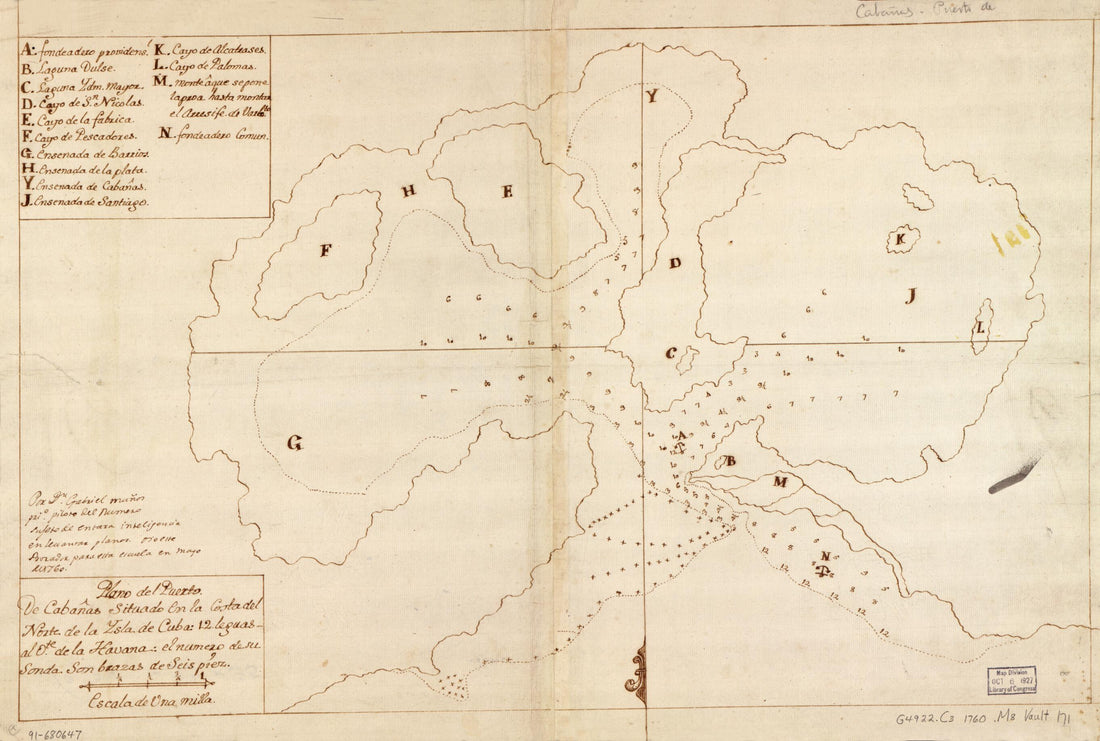 Cabañas - Puerto de
A. fondeadero providens.l
B. Laguna Dulse.
C. Laguna Ydm. Mayor.
D. Cayo de Sn. Nicolas.
E. Cayo de la fabrica.
F. Cayo de Pescadores.
G. Ensenada de Barrios.
H. Ensenada de la plata.
Y. Ensenada de Cabañas.
J. Ensenada de Santiago.
K. Cayo de Alcatrases.
L. Cayo de Palomas.
M. monte âque se pone
la proa hasta montar
el Arresife de
N. fondeadero Comun.
Y
H
E
F
D
K
J
L
C
G
A
B
M
N
Por Dn. Gabriel muños
pri.o piloto del Numero
sujeto de entara inteligencia
en levantar planos
para esta escuela en mayo
1760.
Plano del Puerto
De Cabañas Situado En la Costa del
Norte de la Ysla de Cuba: 12 leguas
al O.te de la Havana: el numero de su
Sonda. Son brazas de Seis pies.
Escala de Una milla.
Map Division
OCT 6 1927
Library of Congress
91-680647
G4922.C3 1760 .M8 Vault